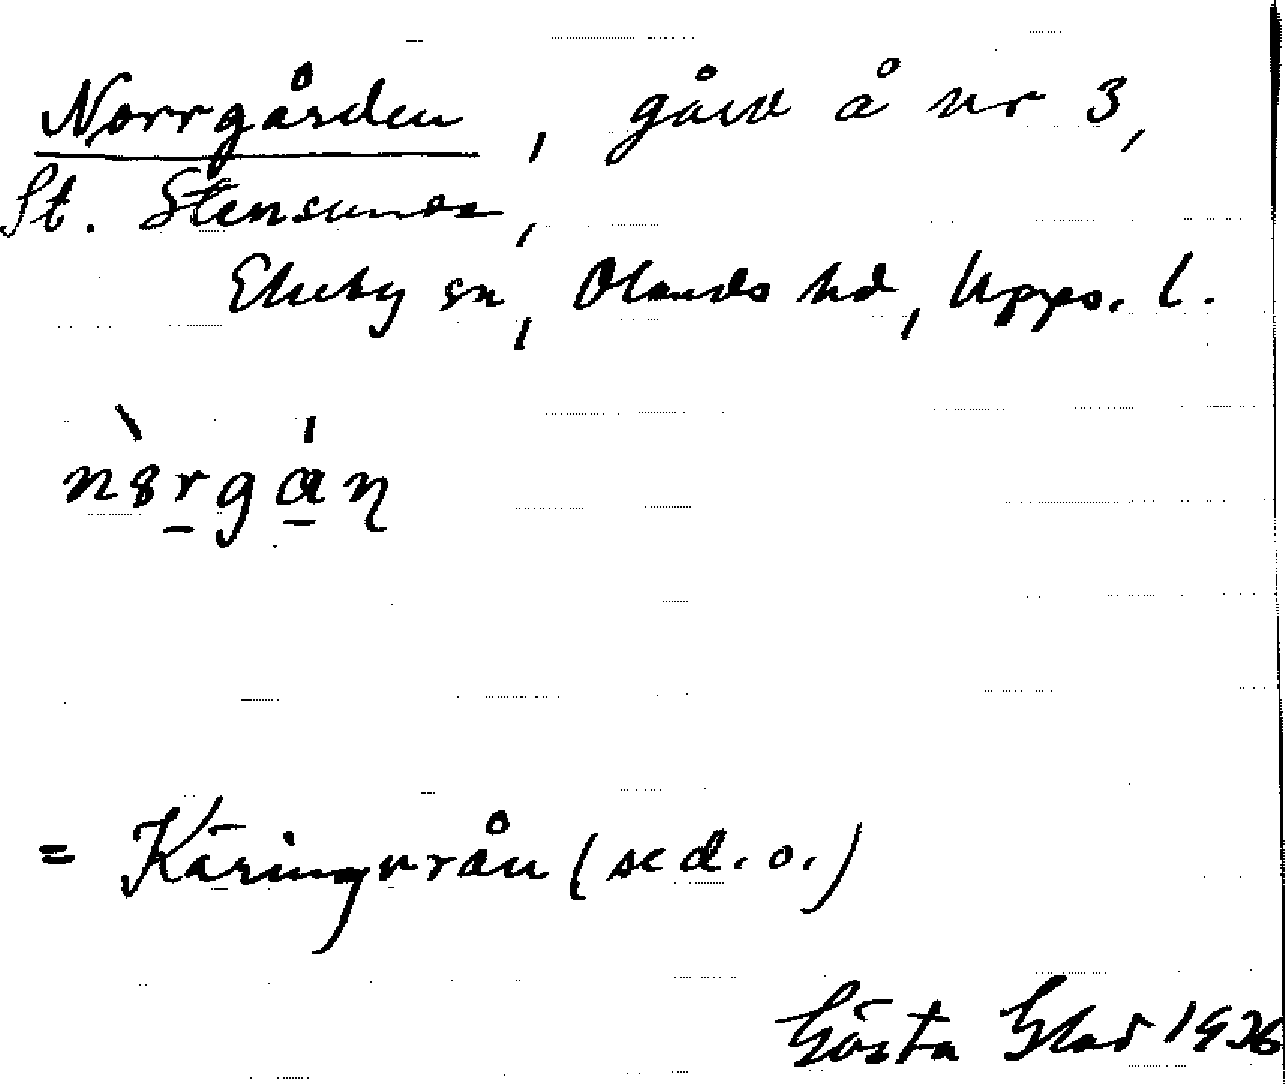 Norrgården, gård å nr 3,
St. Stensunda,
Ekeby sn, Olands hd, Upps. l.
= Käringvrån (se d. o.)
Gösta Glad 1936